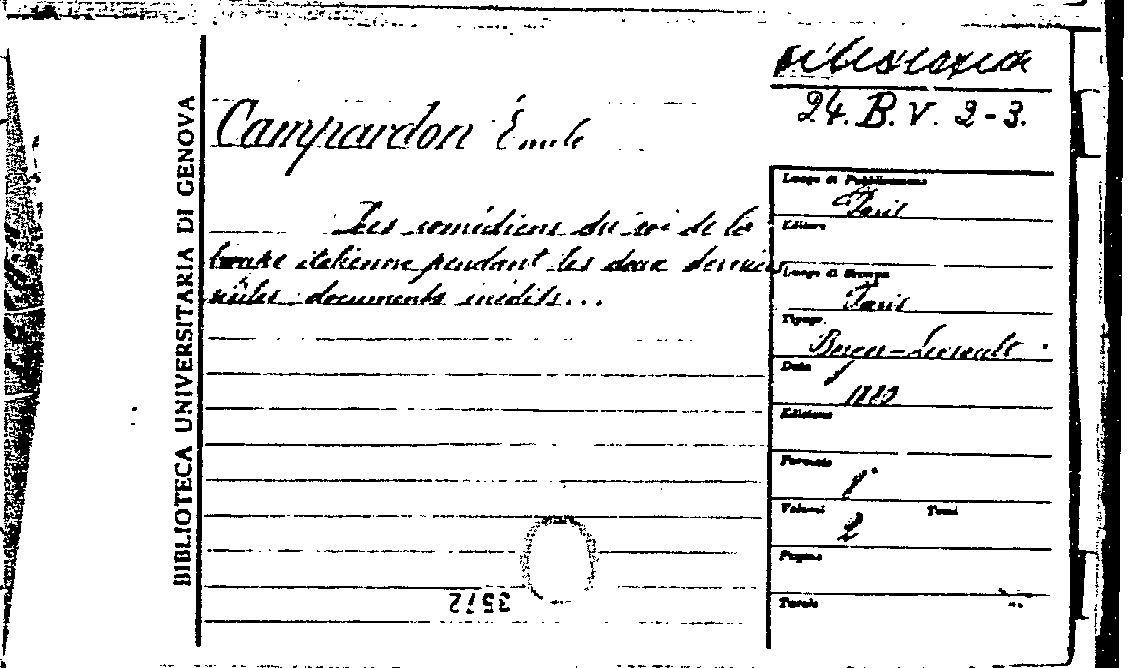 24. B. V. 2-3.
Campardon Émile
Les comédiens du roi de la
troupe italienne pendant les deux derniers
siècles: documents inédits...
BIBLIOTECA UNIVERSITARIA DI GENOVA
Luogo di Pubblicazione
Paris
Editore
Luogo di Stampa
Paris
Tipogr.
Berger-Levrault
Data
1880
Edizione
Formato
8°
Volumi Tomi
2
Pagine
Tavole
3572